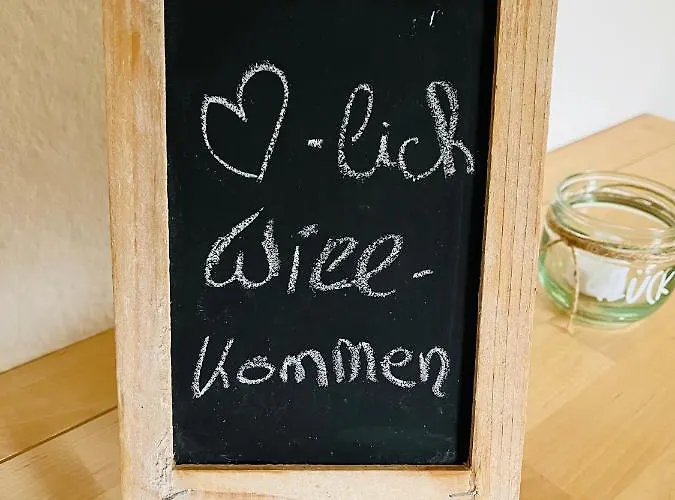 ♡-lich
Will-
kommen
ÜCK